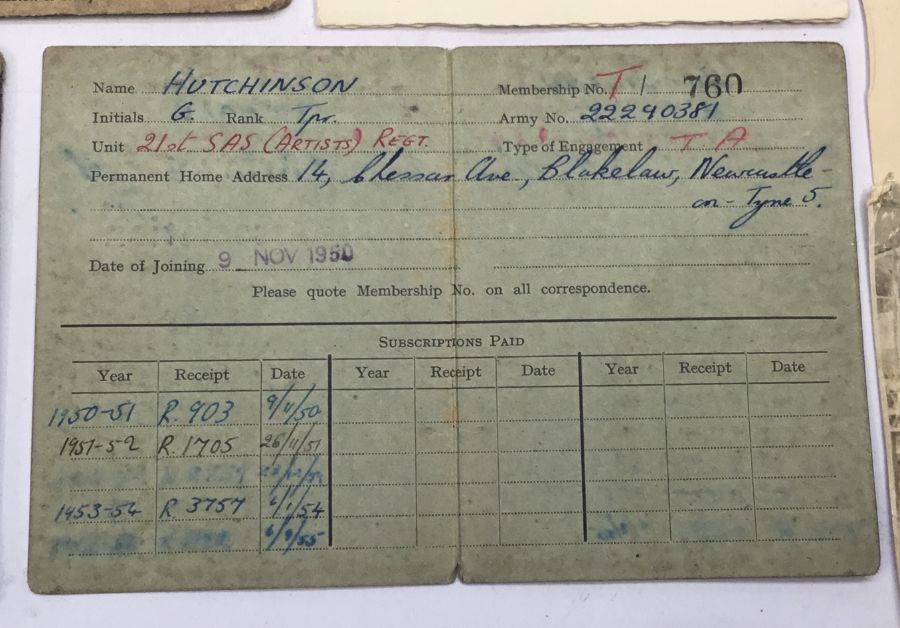 Name HUTCHINSON Membership No. T/ 760
Initials G. Rank Tpr. Army No. 22240381
Unit 21st SAS (ARTISTS) REGT. Type of Engagement T A
Permanent Home Address 14, Chessar Ave, Blakelaw, Newcastle-
on-Tyne 5.
Date of Joining 9 NOV 1950
Please quote Membership No. on all correspondence.
SUBSCRIPTIONS PAID
Year Receipt Date Year Receipt Date Year Receipt Date
1950-51 R. 903 9/11/50
1951-52 R. 1705 26/11/51
1953-54 R 3757 6/1/54